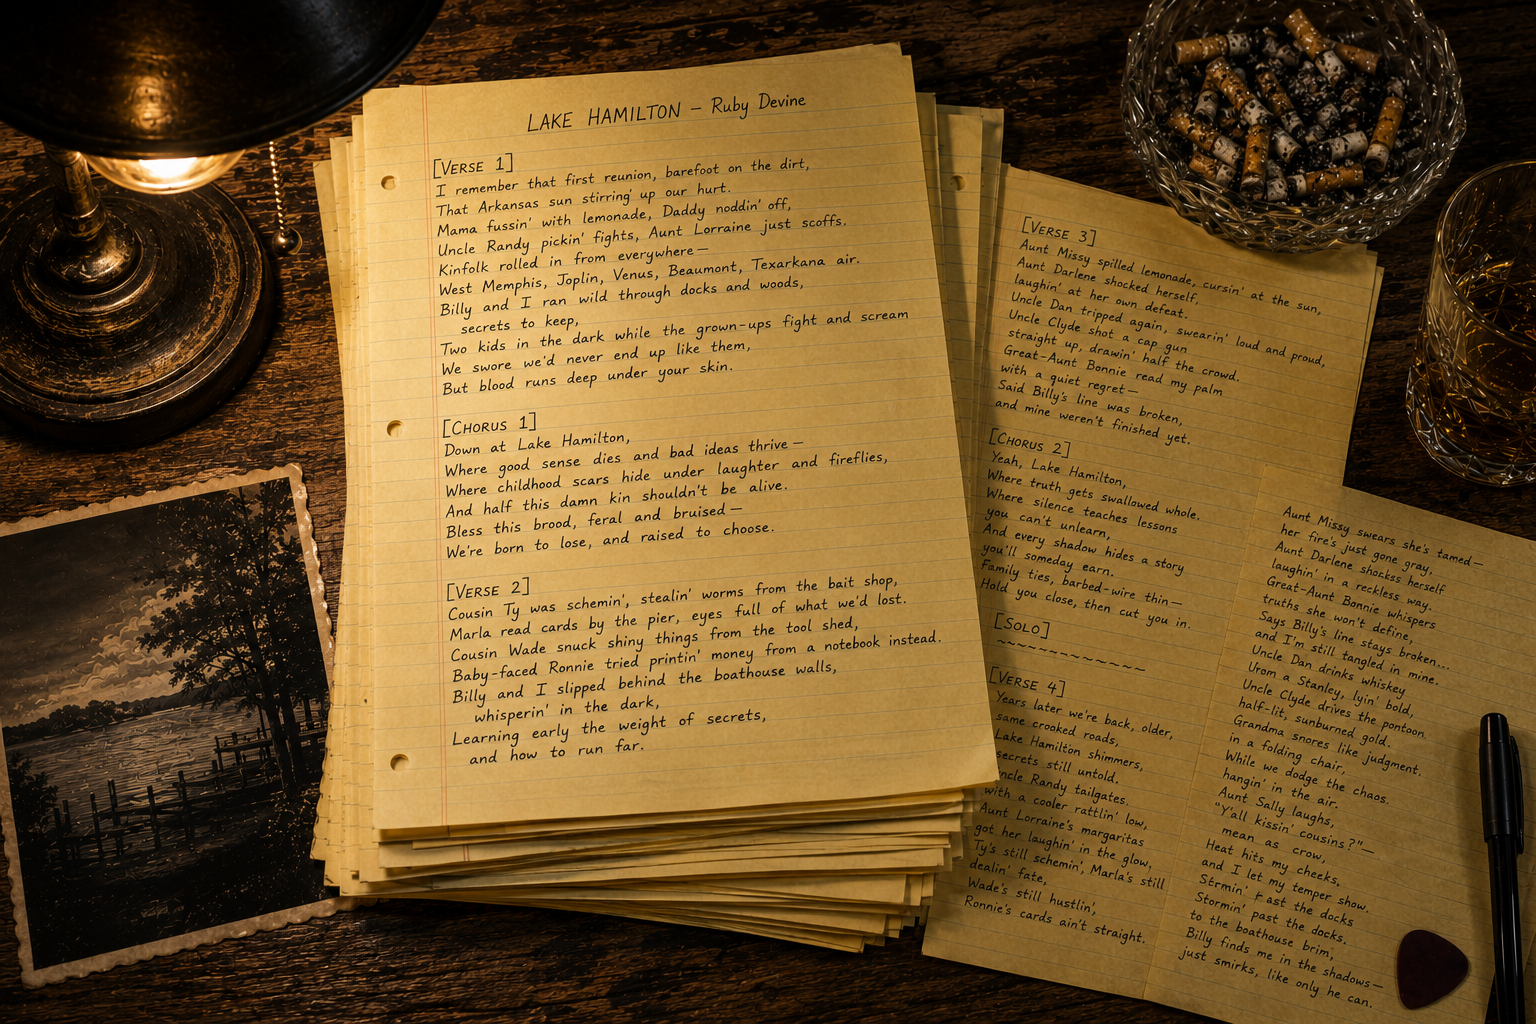 LAKE HAMILTON – Ruby Devine
[VERSE 1]
I remember that first reunion, barefoot on the dirt,
That Arkansas sun stirring' up our hurt.
Mama fussin' with lemonade, Daddy noddin' off,
Uncle Randy pickin' fights, Aunt Lorraine just scoffs.
Kinfolk rolled in from everywhere—
West Memphis, Joplin, Venus, Beaumont, Texarkana air.
Billy and I ran wild through docks and woods,
secrets to keep,
Two kids in the dark while the grown-ups fight and scream
We swore we'd never end up like them,
But blood runs deep under your skin.
[CHORUS 1]
Down at Lake Hamilton,
Where good sense dies and bad ideas thrive—
Where childhood scars hide under laughter and fireflies,
And half this damn kin shouldn't be alive.
Bless this brood, feral and bruised—
We're born to lose, and raised to choose.
[VERSE 2]
Cousin Ty was schemin', stealin' worms from the bait shop,
Marla read cards by the pier, eyes full of what we'd lost.
Cousin Wade snuck shiny things from the tool shed,
Baby-faced Ronnie tried printin' money from a notebook instead.
Billy and I slipped behind the boathouse walls,
whisperin' in the dark,
Learning early the weight of secrets,
and how to run far.
[VERSE 3]
Aunt Missy spilled lemonade, cursin' at the sun,
Aunt Darlene shocked herself,
laughin' at her own defeat.
Uncle Dan tripped again, swearin' loud and proud,
Uncle Clyde shot a cap gun
straight up, drawin' half the crowd.
Great-Aunt Bonnie read my palm
with a quiet regret—
Said Billy's line was broken,
and mine weren't finished yet.
[CHORUS 2]
Yeah, Lake Hamilton,
Where truth gets swallowed whole.
Where silence teaches lessons
you can't unlearn,
And every shadow hides a story
you'll someday earn.
Family ties, barbed-wire thin—
Hold you close, then cut you in.
[SOLO]
[VERSE 4]
Years later we're back, older,
same crooked roads,
Lake Hamilton shimmers,
secrets still untold.
Uncle Randy tailgates
with a cooler rattlin' low,
Aunt Lorraine's margaritas
got her laughin' in the glow,
Ty's still schemin', Marla's still
dealin' fate,
Wade's still hustlin',
Ronnie's cards ain't straight.
Aunt Missy swears she's tamed—
her fire's just gone gray,
Aunt Darlene shockss herself
laughin' in a reckless way.
Great-Aunt Bonnie whispers
truths she won't define,
Says Billy's line stays broken...
and I'm still tangled in mine.
Uncle Dan drinks whiskey
Urom a Stanley, lyin' bold,
Uncle Clyde drives the pontoon
half-lit, sunburned gold.
Grandma snores like judgment.
in a folding chair,
While we dodge the chaos.
hangin' in the air.
Aunt Sally laughs,
"Y'all kissin' cousins?"—
mean as crow,
Heat hits my cheeks,
and I let my temper show.
Strmin' Fast the docks
Stormin' past the docks.
to the boathouse brim;
Billy finds me in the shadows—
just smirks, like only he can.